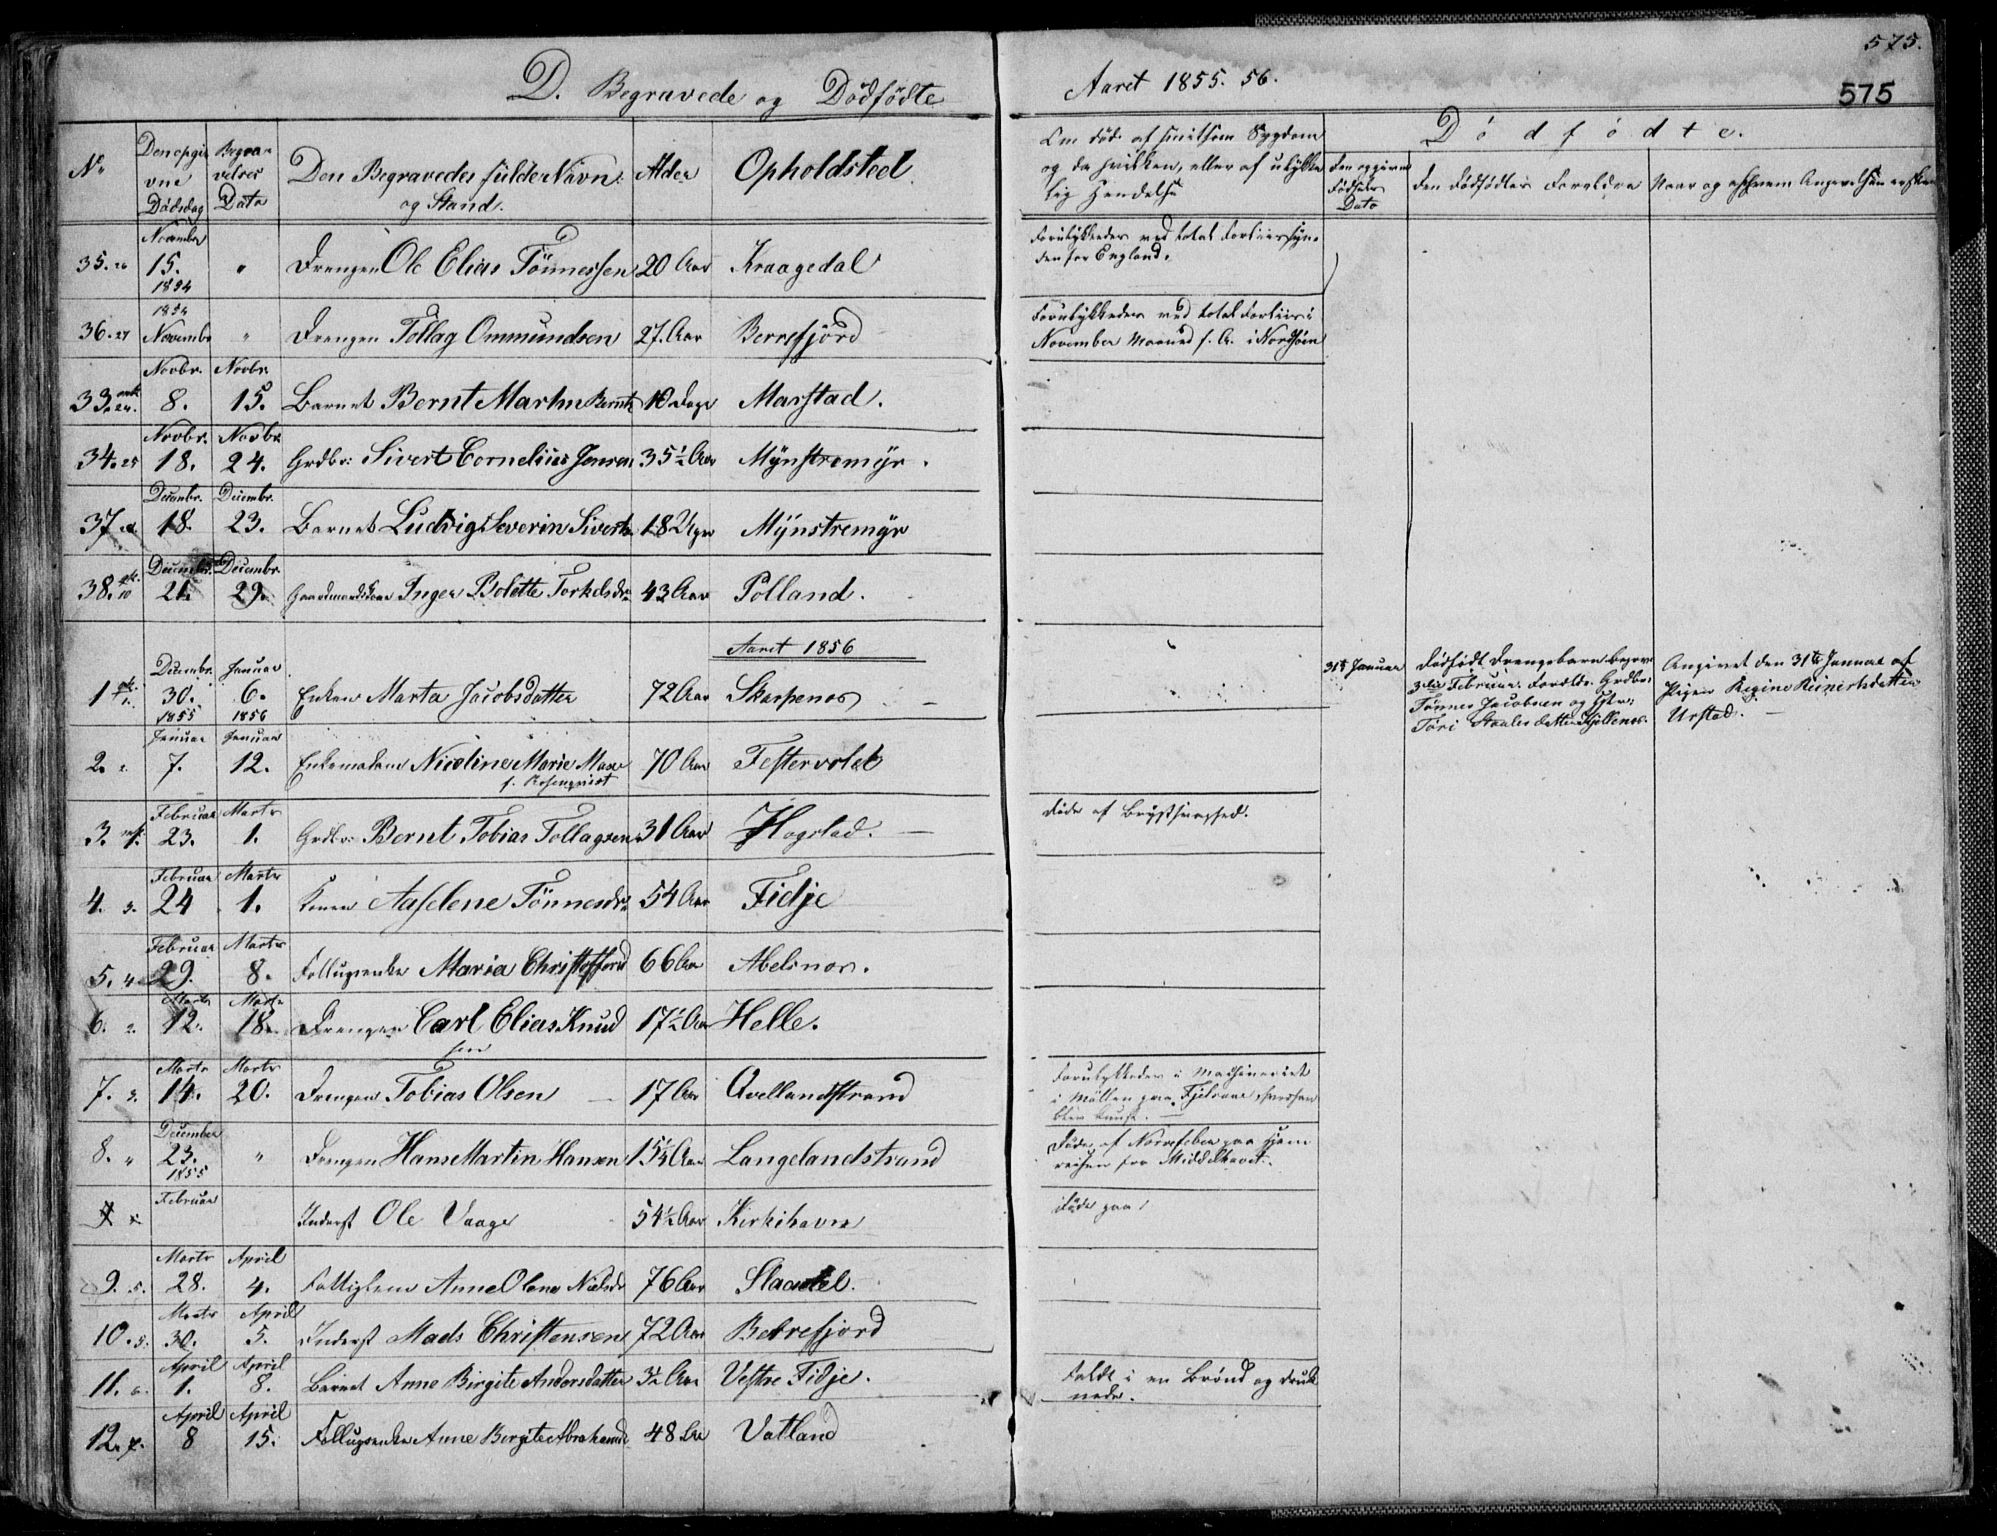 575.
575
D. Begravede og Dödfödte
Aaret 1855. 56.
No
Den opgivne Dödsdag
Begravelses Dato
Den Begravedes fulde Navn og Stand.
Alder
Opholdsted
Om död af smitsom Sygdom
og da hvilken, eller af ulykke
lig Hendelse
Dödfödte.
Den opgivne Födsels Dato
Den Dödfödtes Foreldre
Naar og af hvem Angivelsen
35. 26 November 15. 1854 " Drengen Ole Elias Tönnessen 20 Aar Kraagedal
Forulykkedes ved total Forliis
den for England.
36. 27 1854 November " Drengen Tollag Ommundsen 27. Aar Berrefjord
Forulykkedes ved total Forliis i
November Maaned f. A. i Nordsöen
33. 24. Novbr. 8. Novbr. 15. Barnet Bernt Martin Bernts 10 Dage Marstad.
34. 25 Novbr. 18. Novbr. 24. Grdbr: Sivert Cornelius Jensen 35 1/2 Aar Mÿnstremÿr.
37. Decembr. 18. Decembr. 23. Barnet Ludvig Severin Siverts 18 Uger Mÿnstremÿr
38. 10 Decembr. 21. Decembr. 29. Gaardmandskone Inger Bolette Torkelsdr 43 Aar Polland.
Aaret 1856
1. 1. Decembr. 30. 1855 Januar 6. 1856 Enken Marta Jacobsdatter 72 Aar Skarpenes
31te Januar
Dödfödt Drengebarn begrav
3die Februar. Foreldre Grdbr:
Tönnes Jacobsen og Hstr:
Töri Staalesdatter Kjellenes.
Angivet den 31te Januar af
Pigen Regine Reinertsdatter
Urstad. —
2. 2. Januar 7. Januar 12. Enkemadam Nicoline Marie Moe 70 Aar Festervolet
f. Rosenqvist
3. 1. Februar 23. Marts 1. Grdbr: Bernt Tobias Tollagsen 31 Aar Hogstad. —
Döde af Brystsvaghed.
4. 3. Februar 24 Marts 1. Konen Aaselene Tönnesdr 54 Aar Fidje
5. 4 Februar 29. Marts 8. Follugsenke Maria Christoffersd 66 Aar Abelsnes.
6. 2. Marts 12. Marts 18. Drengen Carl Elias Knud 17 1/2 Aar Helle.
sen
7. 3. Marts 14. Marts 20. Drengen Tobias Olsen — 17 Aar Qvellandstrand
Forulykkedes i Maskineriet
i Möllen paa
8. " December 23. 1855 " Drengen Hans Martin Hansen 15 1/4 Aar Langelandstrand
Döde af Nervefeber paa Hjem
reisen fra Middelhavet.
Februar Inderst Ole Vaage 54 1/2 Aar Kirkehavn
Döde paa
9. 5. Marts 28. April 4. Fattiglem Anne Olene Nielsdr 76 Aar Slaadel.
10. 5. Marts 30. April 5. Inderst Mads Christensen 72 Aar Berrefjord
11. 6. April 1. April 8. Barnet Anne Birgite Andersdatter 3 1/2 Aar Vestre Fidje.
Faldt i en Brönd og druk
nede.
12. 7. April 8 April 15. Follugsenke Anne Bergite Abrahamsd 48 Aar Vatland